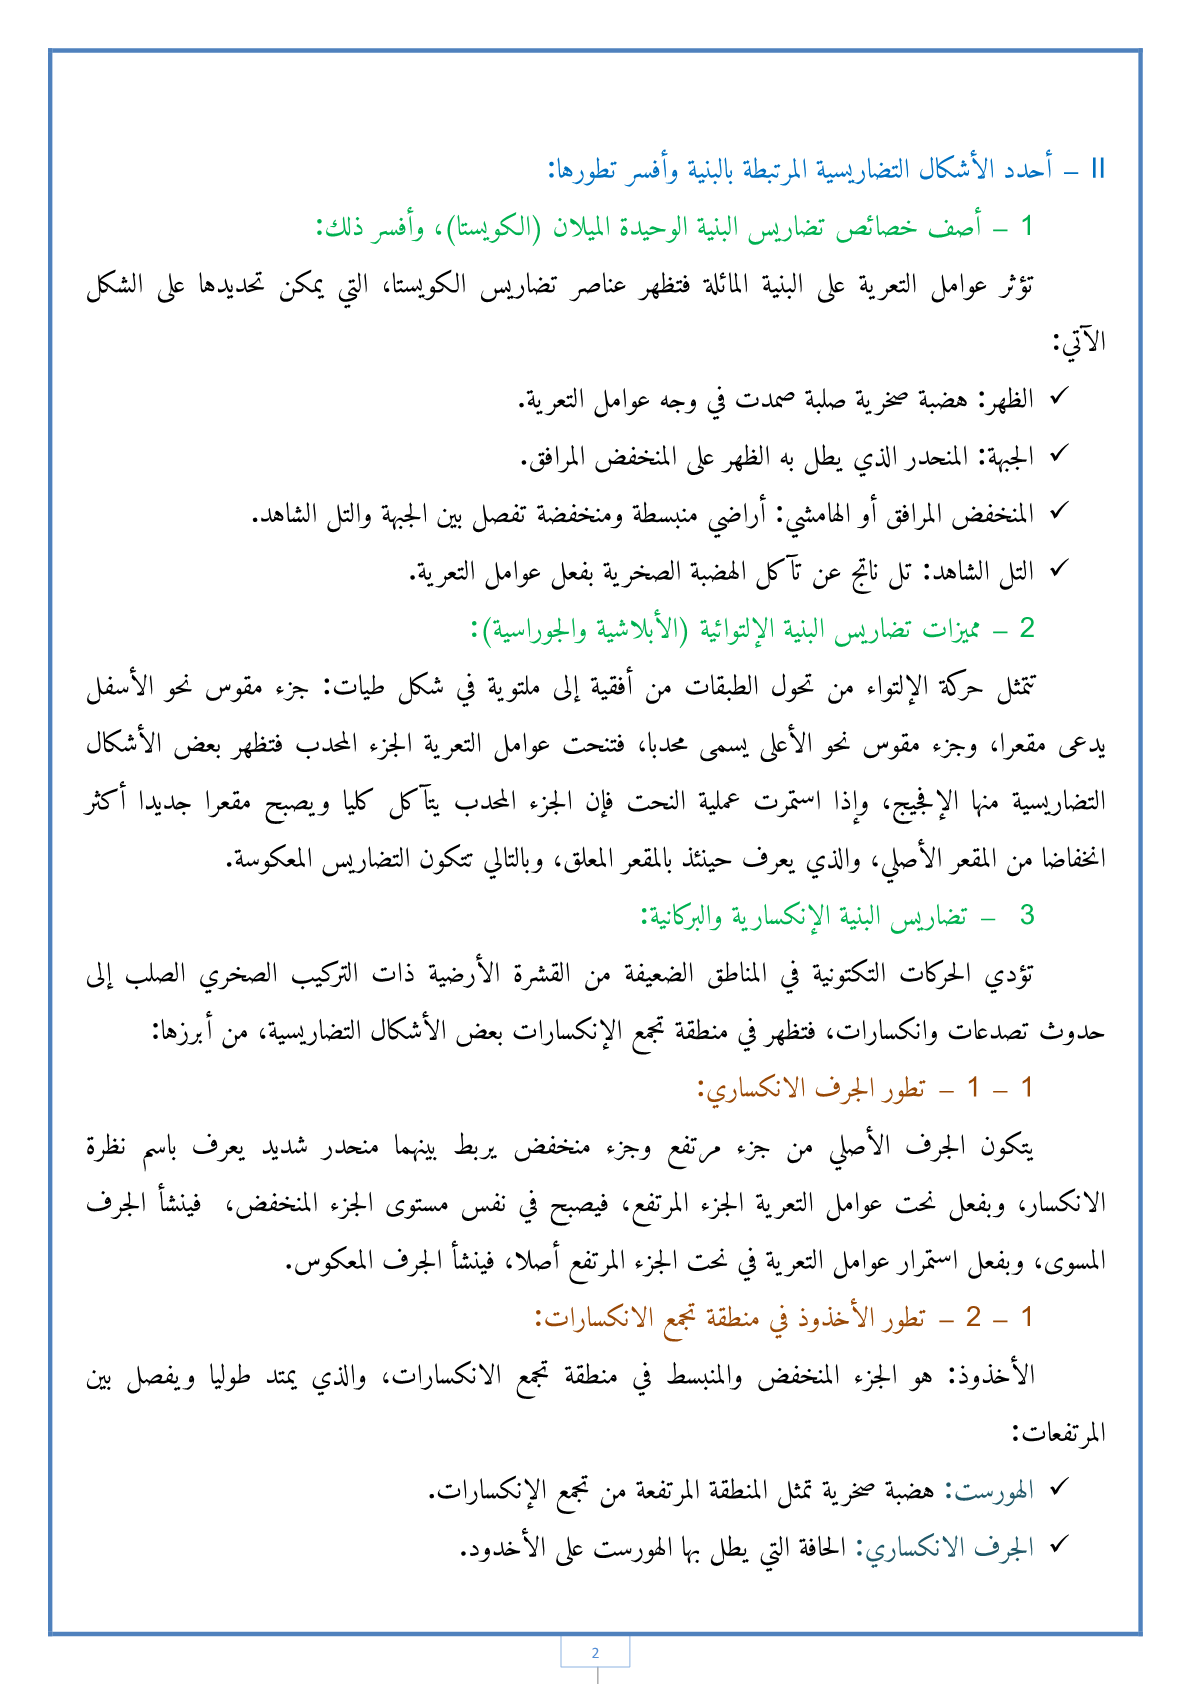 II – أحدد الأشكال التضاريسية المرتبطة بالبنية وأفسر تطورها:
1 – أصف خصائص تضاريس البنية الوحيدة الميلان (الكويستا)، وأفسر ذلك:
تؤثر عوامل التعرية على البنية المائلة فتظهر عناصر تضاريس الكويستا، التي يمكن تحديدها على الشكل
الآتي:
✓ الظهر: هضبة صخرية صلبة صمدت في وجه عوامل التعرية.
✓ الجبهة: المنحدر الذي يطل به الظهر على المنخفض المرافق.
✓ المنخفض المرافق أو الهامشي: أراضي منبسطة ومنخفضة تفصل بين الجبهة والتل الشاهد.
✓ التل الشاهد: تل ناتج عن تآكل الهضبة الصخرية بفعل عوامل التعرية.
2 – مميزات تضاريس البنية الإلتوائية (الأبلاشية والجوراسية):
تتمثل حركة الإلتواء من تحول الطبقات من أفقية إلى ملتوية في شكل طيات: جزء مقوس نحو الأسفل
يدعى مقعرا، وجزء مقوس نحو الأعلى يسمى محدبا، فتنحت عوامل التعرية الجزء المحدب فتظهر بعض الأشكال
التضاريسية منها الإفجيج، وإذا استمرت عملية النحت فإن الجزء المحدب يتآكل كليا ويصبح مقعرا جديدا أكثر
انخفاضا من المقعر الأصلي، والذي يعرف حينئذ بالمقعر المعلق، وبالتالي تتكون التضاريس المعكوسة.
3 – تضاريس البنية الإنكسارية والبركانية:
تؤدي الحركات التكتونية في المناطق الضعيفة من القشرة الأرضية ذات التركيب الصخري الصلب إلى
حدوث تصدعات وانكسارات، فتظهر في منطقة تجمع الإنكسارات بعض الأشكال التضاريسية، من أبرزها:
1 – 1 – تطور الجرف الانكساري:
يتكون الجرف الأصلي من جزء مرتفع وجزء منخفض يربط بينهما منحدر شديد يعرف باسم نظرة
الانكسار، وبفعل نحت عوامل التعرية الجزء المرتفع، فيصبح في نفس مستوى الجزء المنخفض، فينشأ الجرف
المسوى، وبفعل استمرار عوامل التعرية في نحت الجزء المرتفع أصلا، فينشأ الجرف المعكوس.
1 – 2 – تطور الأخذوذ في منطقة تجمع الانكسارات:
الأخذوذ: هو الجزء المنخفض والمنبسط في منطقة تجمع الانكسارات، والذي يمتد طوليا ويفصل بين
المرتفعات:
✓ الهورست: هضبة صخرية تمثل المنطقة المرتفعة من تجمع الإنكسارات.
✓ الجرف الانكساري: الحافة التي يطل بها الهورست على الأخدود.
2